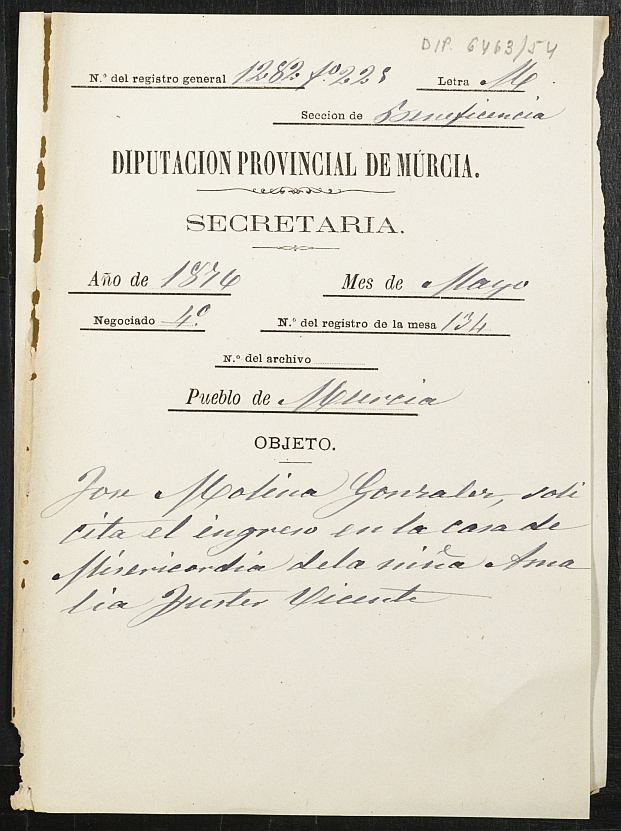 DIP. 6463/54
N.º del registro general 1282 fº 228 Letra M
Seccion de Beneficencia
DIPUTACION PROVINCIAL DE MÚRCIA.
SECRETARIA.
Año de 1876 Mes de Mayo
Negociado 4º N.º del registro de la mesa 134
N.º del archivo
Pueblo de Murcia
OBJETO.
Jose Molina Gonzalez, soli
cita el ingreso en la casa de
Misericordia de la niña Ama
lia Fuster Vicente